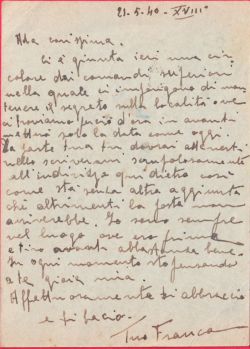 21-5-40-XVIII°
Ada carissima.
Ci è giunta ieri una cir-
colare dai comandi superiori
nella quale ci impongono di man-
tenere il segreto sulla località ove
ci troviamo perciò d'ora in avanti
metterò solo la data come oggi.
Da parte tua tu dovrai attenerti
nello scrivermi scrupolosamente
all'indirizzo qui dietro così
come sta senza altra aggiunta
che altrimenti la posta non
arriverebbe. Io sono sempre
nel luogo ove ero prima
e tiro avanti abbastanza bene.
In ogni momento sto pensando
a te gioia mia.
Affettuosamente ti abbraccio
e ti bacio.
Tuo Franco